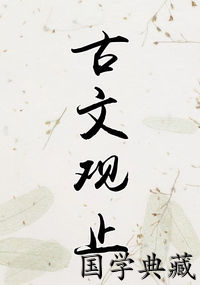 古文观止
国学典藏